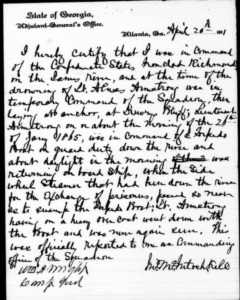 State of Georgia,
Adjutant-General's Office.
Atlanta, Ga. April 20th
I hereby certify that I was in command
of the Confederate States Ironclad Richmond
on the James river, and at the time of the
drowning of Lt. Armstrong was in
temporary Command of the Squadron, then
laying at anchor, at Bluff, Lieutenant
Armstrong on or about the hour of the 21st
of Jany 1865, was in command of a torpedo
Boat on guard duty down the river and
about daylight in the morning was
returning on board Ship, when the Side
wheel Steamer that had been down the river
for the Exchange of prisoners, passed so near
as to swamp the Boat. Lt. Armstrong
having on a heavy over coat went down with
the Boat and was never again seen. This
was officially reported to me as Commanding
officer of the Squadron
Jno. McIntosh Kell